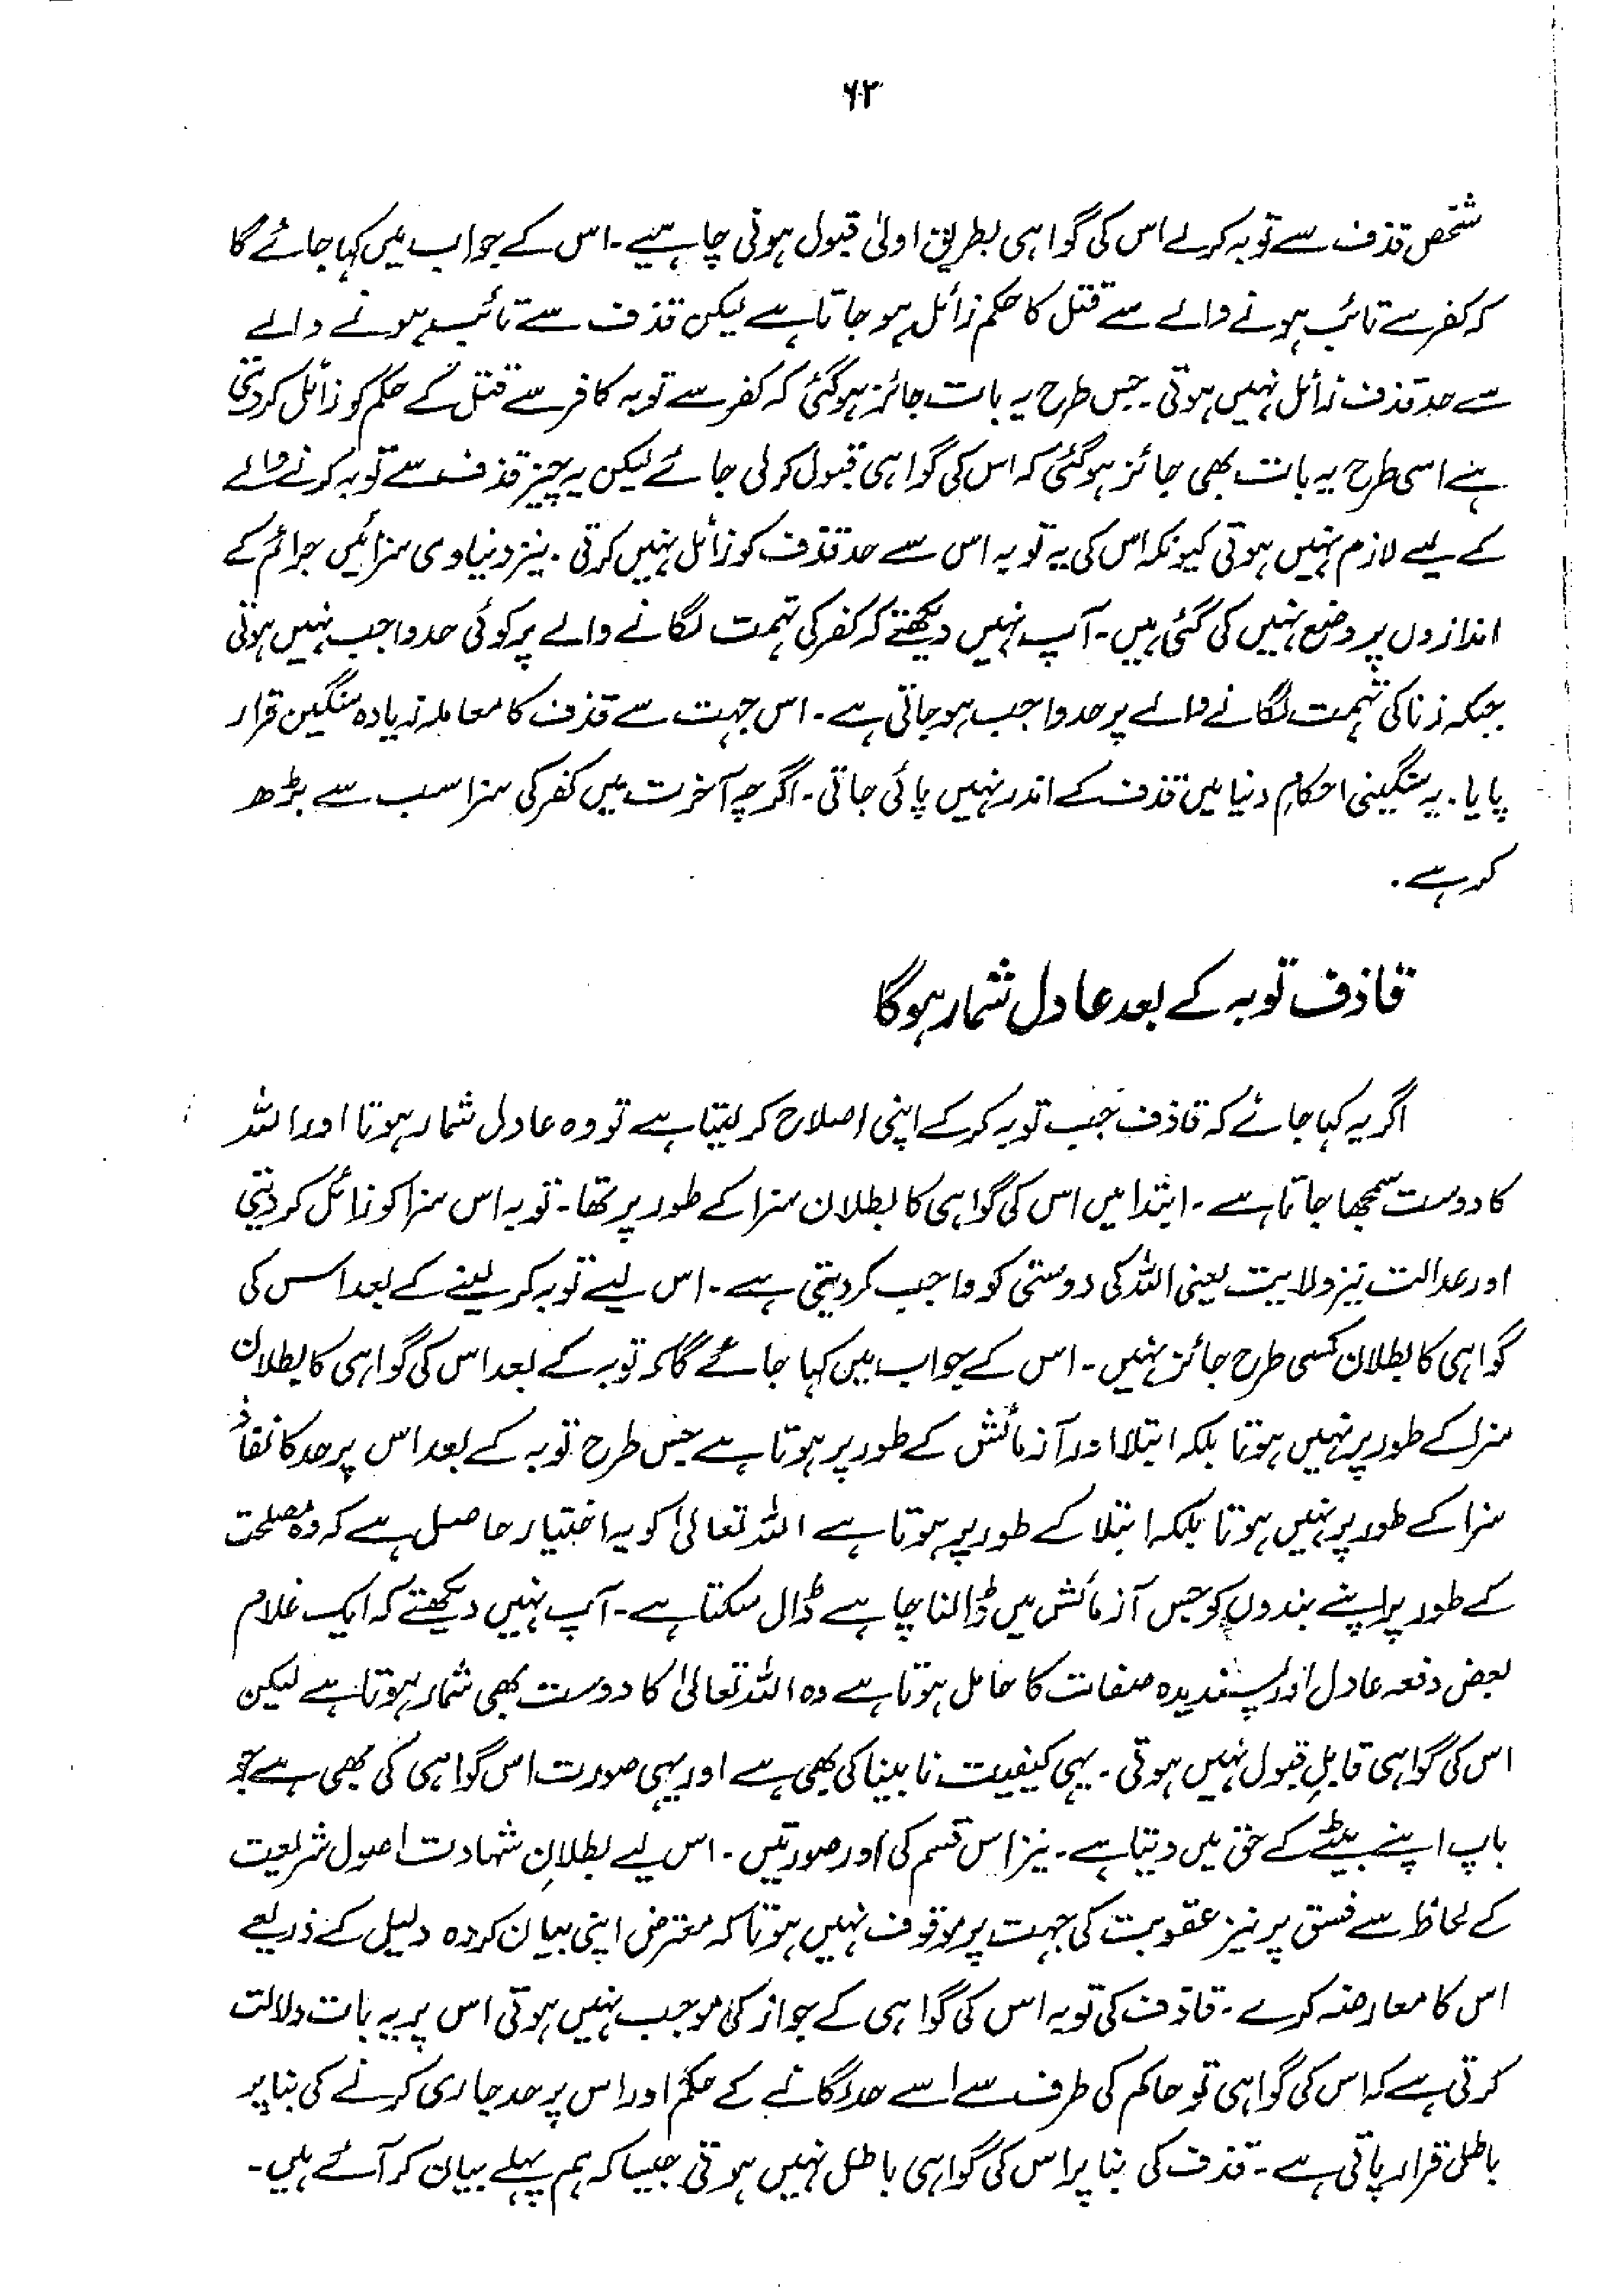 ۶۲
شخص قذف سے توبہ کرلے اس کی گواہی بطریق اولیٰ قبول ہونی چاہیے۔ اس کے جواب میں کہا جائے گا
کہ کفر سے تائب ہونے والے سے قتل کا حکم زائل ہو جاتا ہے لیکن قذف سے تائب ہونے والے
سے حد قذف زائل نہیں ہوتی۔ جس طرح یہ بات جائز ہوگئی کہ کفر سے توبہ کافر سے قتل کے حکم کو زائل کر دیتی
ہے اسی طرح یہ بات بھی جائز ہوگئی کہ اس کی گواہی قبول کرلی جائے لیکن یہ چیز قذف سے توبہ کرنے والے
کے لیے لازم نہیں ہوتی کیونکہ اس کی یہ توبہ اس سے حد قذف کو زائل نہیں کرتی۔ نیز دنیاوی سزائیں جرائم کے
اندازوں پر وضع نہیں کی گئی ہیں۔ آپ نہیں دیکھتے کہ کفر کی تہمت لگانے والے پر کوئی حد واجب نہیں ہوتی
جبکہ زنا کی تہمت لگانے والے پر حد واجب ہو جاتی ہے۔ اس جہت سے قذف کا معاملہ زیادہ سنگین قرار
پایا۔ یہ سنگینی احکام دنیا میں قذف کے اندر نہیں پائی جاتی۔ اگرچہ آخرت میں کفر کی سزا سب سے بڑھ
کر ہے۔
قاذف توبہ کے بعد عادل شمار ہوگا
اگر یہ کہا جائے کہ قاذف جب توبہ کرکے اپنی اصلاح کر لیتا ہے تو وہ عادل شمار ہوتا اور اللہ
کا دوست سمجھا جاتا ہے۔ ابتدا میں اس کی گواہی کا بطلان سزا کے طور پر تھا۔ توبہ اس سزا کو زائل کر دیتی
اور عدالت نیز ولایت یعنی اللہ کی دوستی کو واجب کر دیتی ہے۔ اس لیے توبہ کر لینے کے بعد اس کی
گواہی کا بطلان کسی طرح جائز نہیں۔ اس کے جواب میں کہا جائے گا کہ توبہ کے بعد اس کی گواہی کا بطلان
سزا کے طور پر نہیں ہوتا بلکہ ابتلا اور آزمائش کے طور پر ہوتا ہے جس طرح توبہ کے بعد اس پر حد کا نفاذ
سزا کے طور پر نہیں ہوتا بلکہ ابتلا کے طور پر ہوتا ہے اللہ تعالیٰ کو یہ اختیار حاصل ہے کہ وہ مصلحت
کے طور پر اپنے بندوں کو جس آزمائش میں ڈالنا چاہے ڈال سکتا ہے۔ آپ نہیں دیکھتے کہ ایک غلام
بعض دفعہ عادل اور پسندیدہ صفات کا حامل ہوتا ہے وہ اللہ تعالیٰ کا دوست بھی شمار ہوتا ہے لیکن
اس کی گواہی قابلِ قبول نہیں ہوتی۔ یہی کیفیت نابینا کی بھی ہے اور یہی صورت اس گواہی کی بھی ہے جو
باپ اپنے بیٹے کے حق میں دیتا ہے۔ نیز اس قسم کی اور صورتیں۔ اس لیے بطلانِ شہادت اصول شریعت
کے لحاظ سے فسق پر نیز عقوبت کی جہت پر موقوف نہیں ہوتا کہ معترض اپنی بیان کردہ دلیل کے ذریعے
اس کا معارضہ کرے۔ قاذف کی توبہ اس کی گواہی کے جواز کی موجب نہیں ہوتی اس پر یہ بات دلالت
کرتی ہے کہ اس کی گواہی تو حاکم کی طرف سے اسے حد لگانے کے حکم اور اس پر حد جاری کرنے کی بنا پر
باطل قرار پاتی ہے۔ قذف کی بنا پر اس کی گواہی باطل نہیں ہوتی جیسا کہ ہم پہلے بیان کر آئے ہیں۔